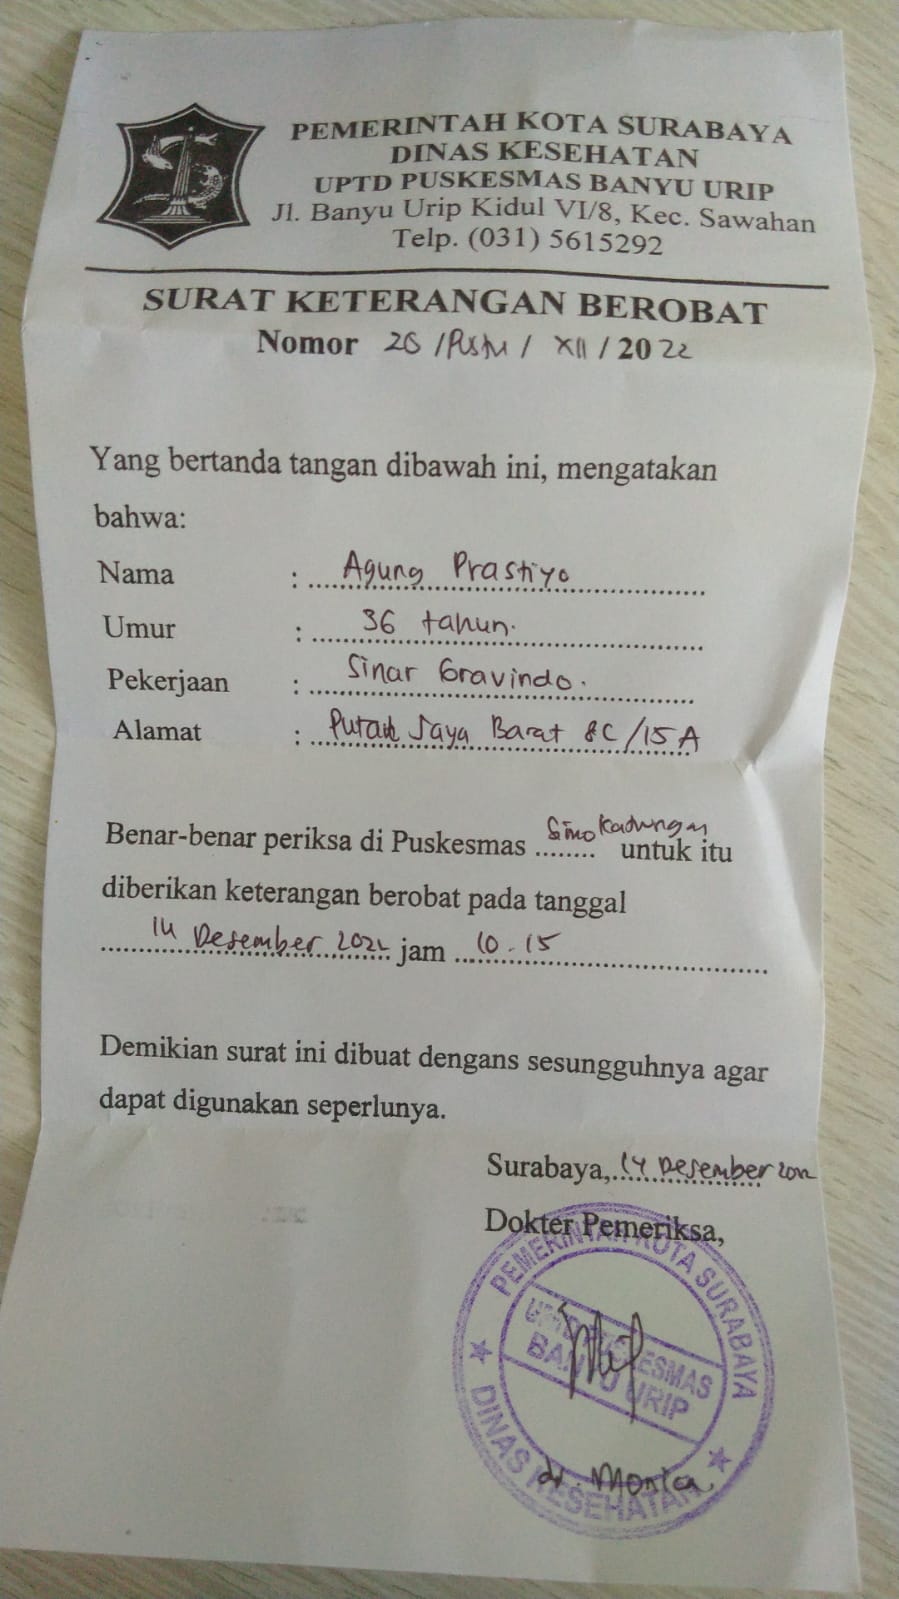 PEMERINTAH KOTA SURABAYA
DINAS KESEHATAN
UPTD PUSKESMAS BANYU URIP
Jl. Banyu Urip Kidul VI/8, Kec. Sawahan
Telp. (031) 5615292
SURAT KETERANGAN BEROBAT
Nomor 26 /Pustu / XII / 2022
Yang bertanda tangan dibawah ini, mengatakan
bahwa:
Nama : Agung Prastiyo
Umur : 36 tahun.
Pekerjaan : Sinar Gravindo.
Alamat : Putat Jaya Barat 8C/15A
Benar-benar periksa di Puskesmas Simo Kadungan untuk itu
diberikan keterangan berobat pada tanggal
14 Desember 2022 jam 10.15
Demikian surat ini dibuat dengans sesungguhnya agar
dapat digunakan seperlunya.
Surabaya, 14 Desember 2022
Dokter Pemeriksa,
PEMERINTAH KOTA SURABAYA
UPTD PUSKESMAS
BANYU URIP
dr. Monica
DINAS KESEHATAN